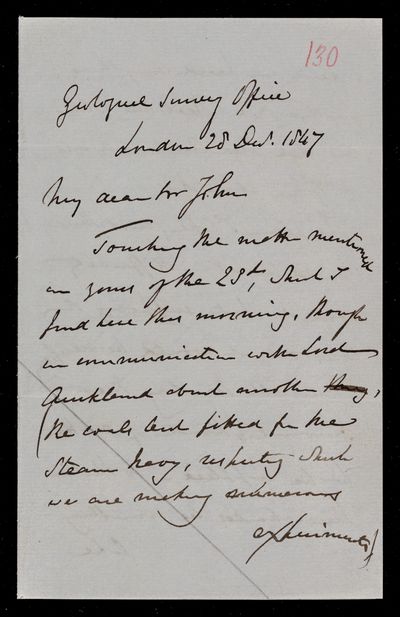 130
Geological Survey Office
London 28 Decr. 1847
My dear Sir John
Touching the matter mentioned
in yours of the 23d, which I
find here this morning, though
in communication with Lord
Auckland about another thing,
(the coals best fitted for the
Steam Navy, respecting which
we are making numerous
experiments)